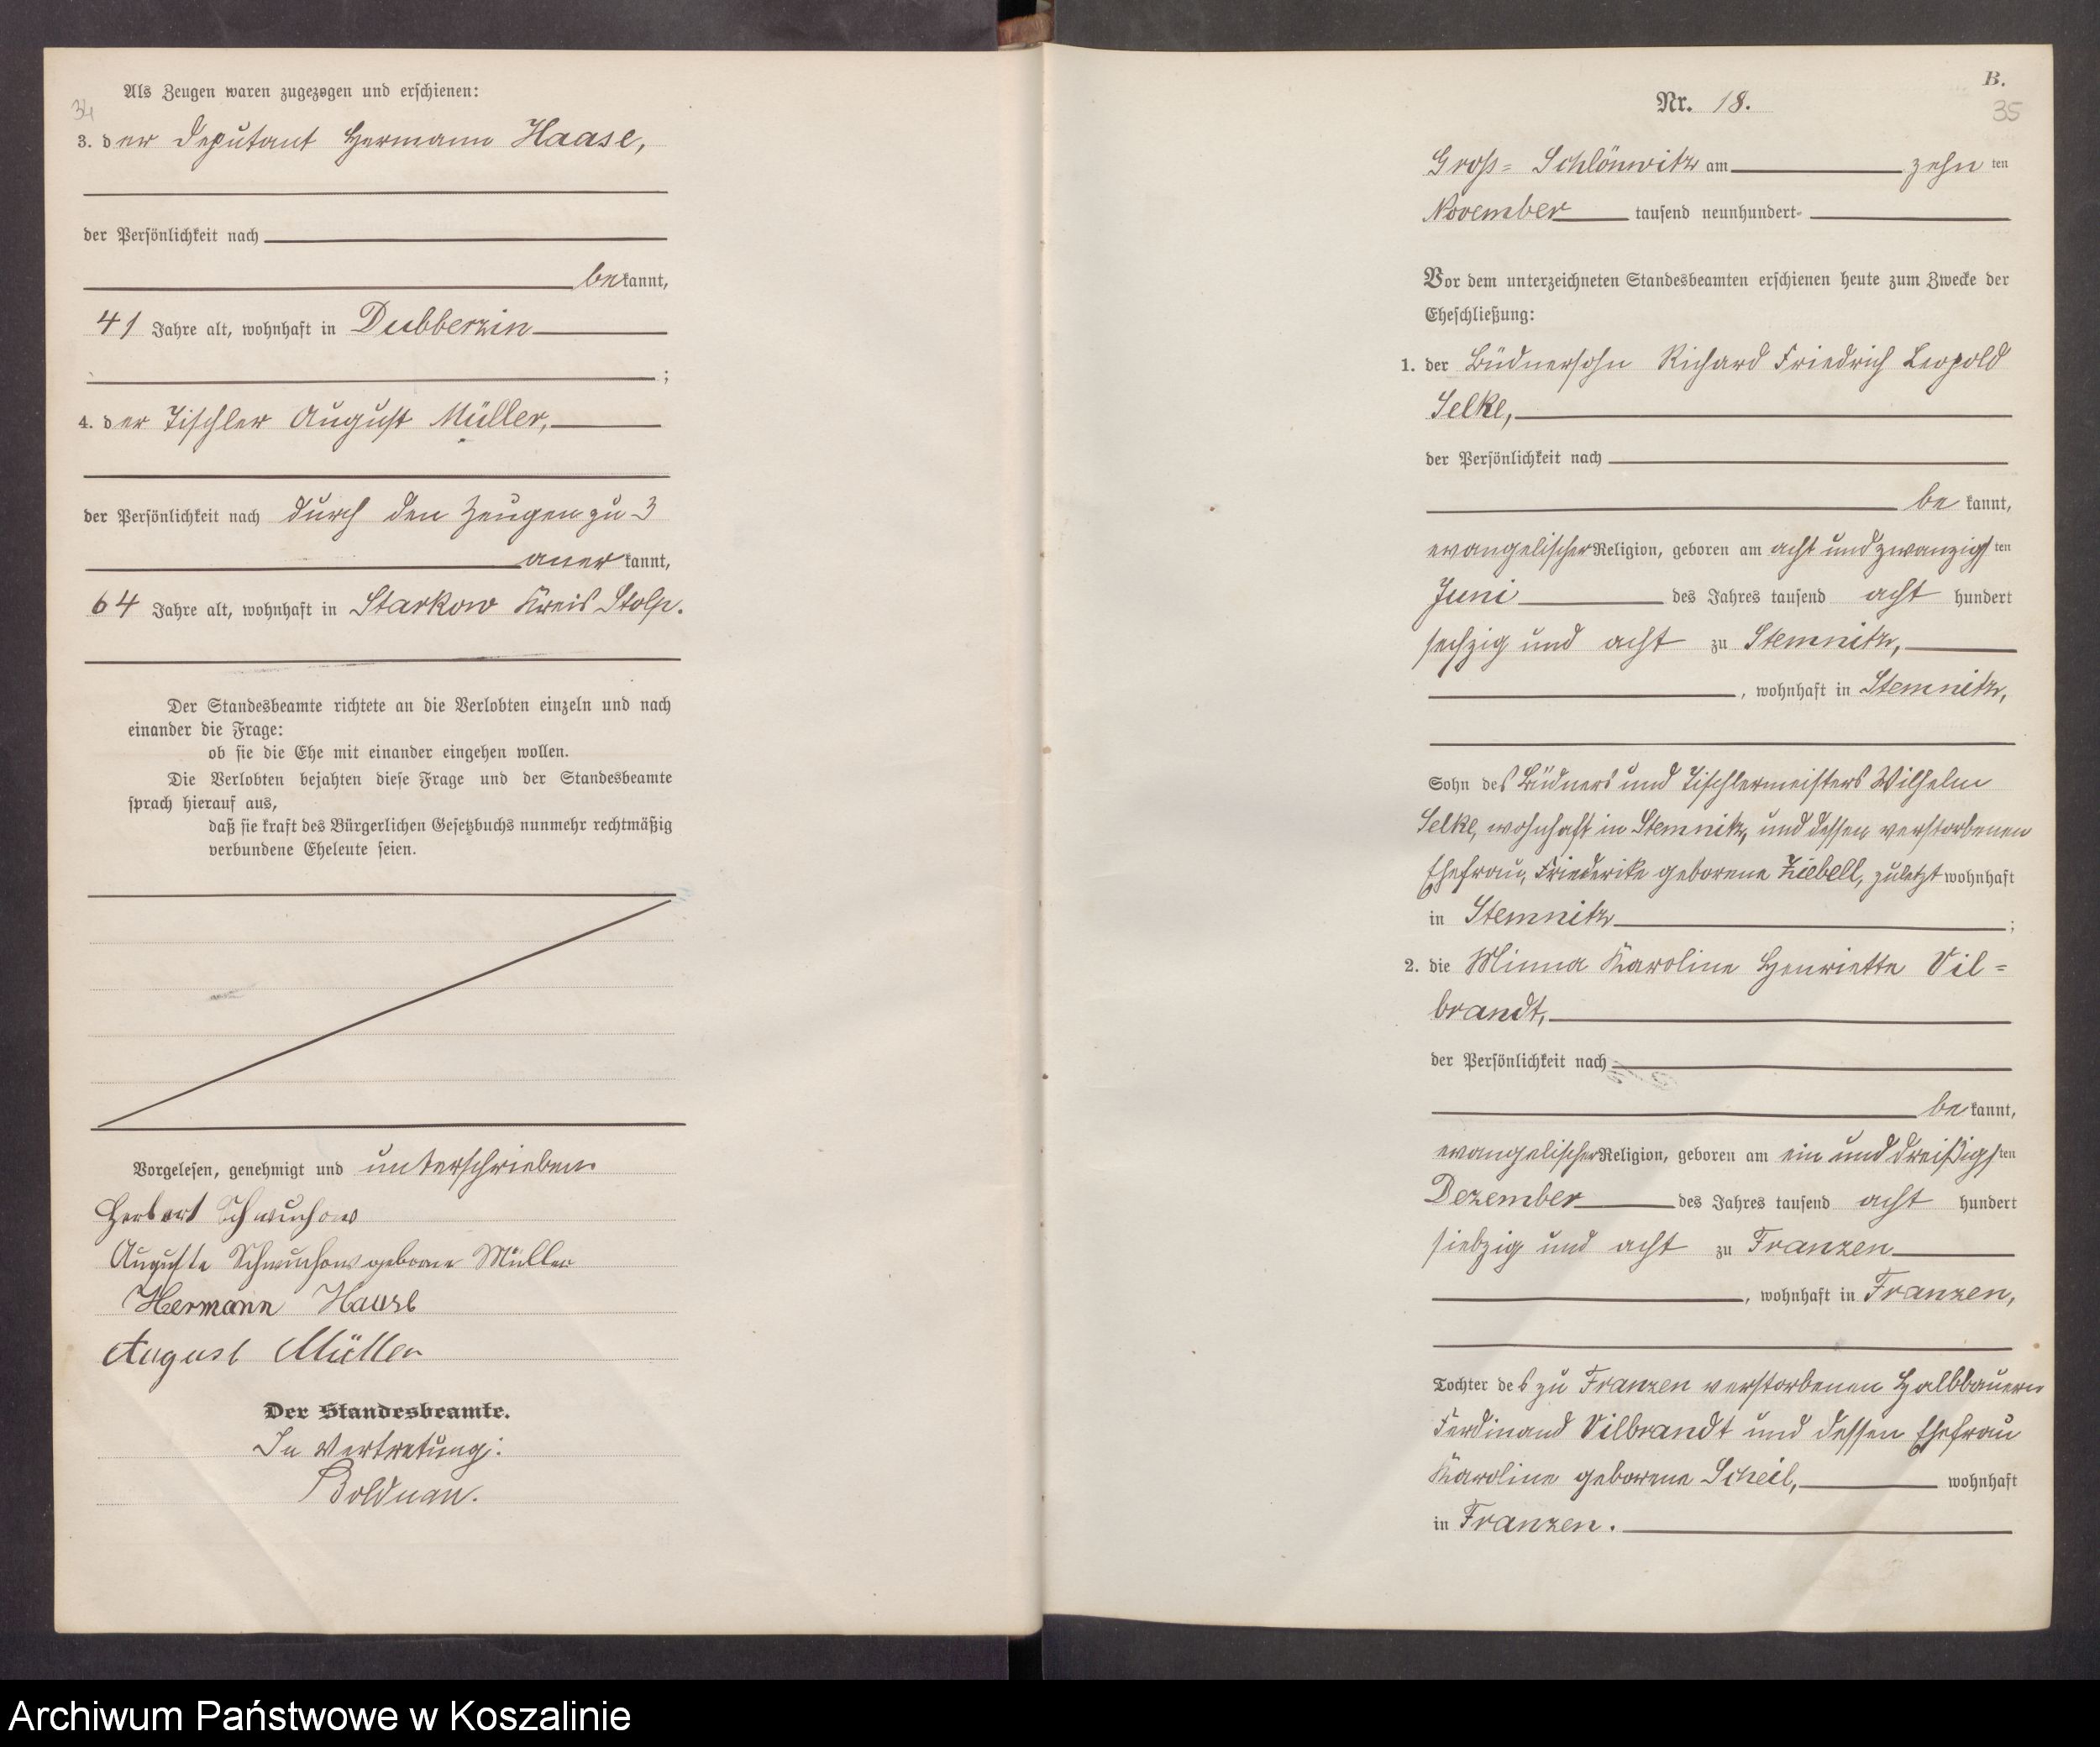 34
Als Zeugen waren zugezogen und erschienen:
3. der Deputant Hermann Haase,
der Persönlichkeit nach
bekannt,
41 Jahre alt, wohnhaft in Dubberzin
;
4. der Tischler August Müller,
der Persönlichkeit nach durch den Zeugen zu 3
anerkannt,
64 Jahre alt, wohnhaft in Starkow Kreis Stolp.
Der Standesbeamte richtete an die Verlobten einzeln und nach
einander die Frage:
ob sie die Ehe mit einander eingehen wollen.
Die Verlobten bejahten diese Frage und der Standesbeamte
sprach hierauf aus,
daß sie kraft des Bürgerlichen Gesetzbuchs nunmehr rechtmäßig
verbundene Eheleute seien.
Vorgelesen, genehmigt und unterschrieben.
Herbert Schwuchow
Auguste Schwuchow geborne Müller
Hermann Haase
August Müller
Der Standesbeamte.
In Vertretung:
Bolduan.
B.
35
Nr. 18.
Groß-Schlönwitz am zehn ten
November tausend neunhundert-
Vor dem unterzeichneten Standesbeamten erschienen heute zum Zwecke der
Eheschließung:
1. der Büdnersohn Richard Friedrich Leopold
Selke,
der Persönlichkeit nach
be kannt,
evangelischer Religion, geboren am acht und zwanzigsten
Juni des Jahres tausend acht hundert
sechzig und acht zu Stemnitz,
, wohnhaft in Stemnitz,
Sohn des Büdners und Tischlermeisters Wilhelm
Selke, wohnhaft in Stemnitz, und dessen verstorbenen
Ehefrau, Friederike geborene Ziebell, zuletzt wohnhaft
in Stemnitz ;
2. die Minna Karoline Henriette Vil=
brandt,
der Persönlichkeit nach
be kannt,
evangelischer Religion, geboren am ein und dreißigsten
Dezember des Jahres tausend acht hundert
siebzig und acht zu Franzen
, wohnhaft in Franzen,
Tochter des zu Franzen verstorbenen Halbbauern
Ferdinand Vilbrandt und dessen Ehefrau
Karoline geborene Scheil, wohnhaft
in Franzen.
Archiwum Państwowe w Koszalinie